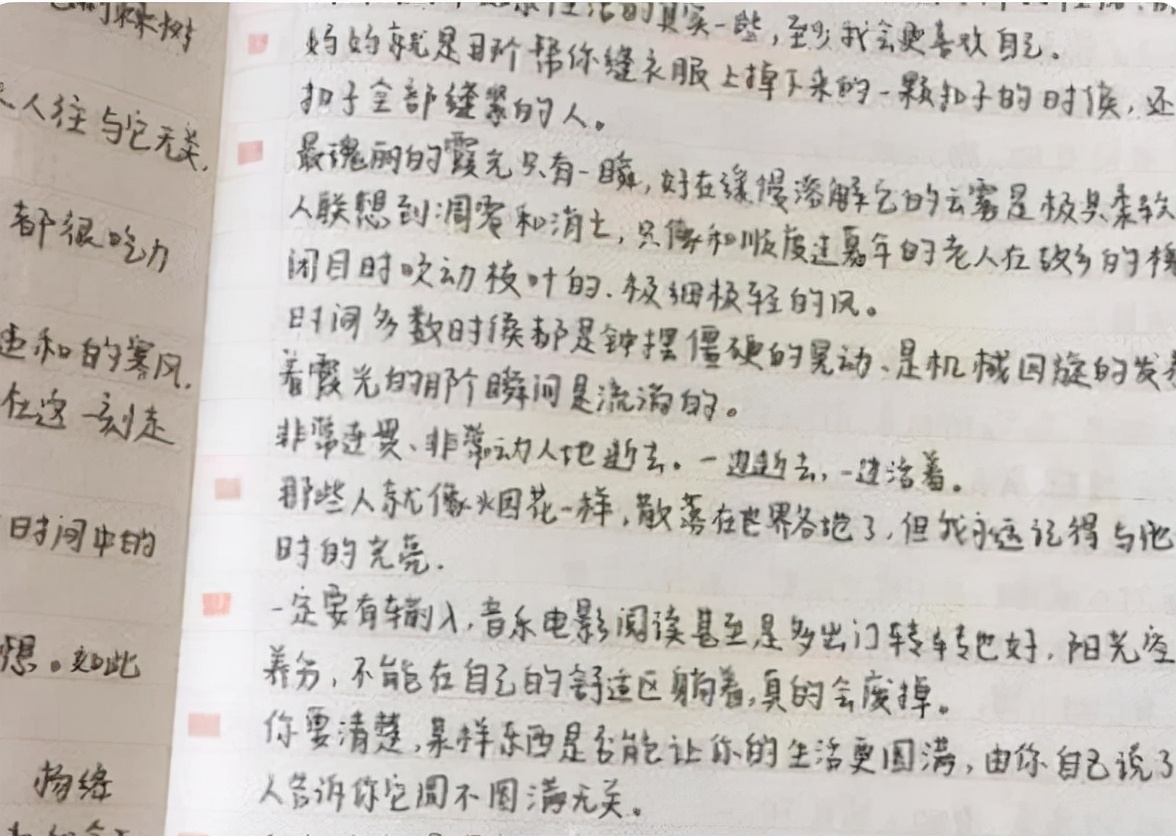 人往与它无关,
都很吃力
和的寒风,
在这一刻走
时间中的
想。如此
杨绛
生活的真实一些,至少我会更喜欢自己。
妈妈就是那个帮你缝衣服上掉下来的一颗扣子的时候,还
扣子全部缝紧的人。
最瑰丽的霞光只有一瞬,好在缓慢溶解它的云雾是极具柔软
人联想到凋零和消亡,只像和顺度过嘉年的老人在故乡的
闭目时吹动枝叶的、极细极轻的风。
时间多数时候都是钟摆僵硬的晃动、是机械回旋的发
着霞光的那个瞬间是流淌的。
非常连贯、非常动人地逝去。一边逝去,一边活着。
那些人就像烟花一样,散落在世界各地了,但我永远记得与他
时的光亮.
一定要有输入,音乐电影阅读甚至是多出门转转也好,阳光空
养分,不能在自己的舒适区躺着,真的会废掉。
你要清楚,某样东西是否能让你的生活更圆满,由你自己说了
人告诉你它圆不圆满无关。